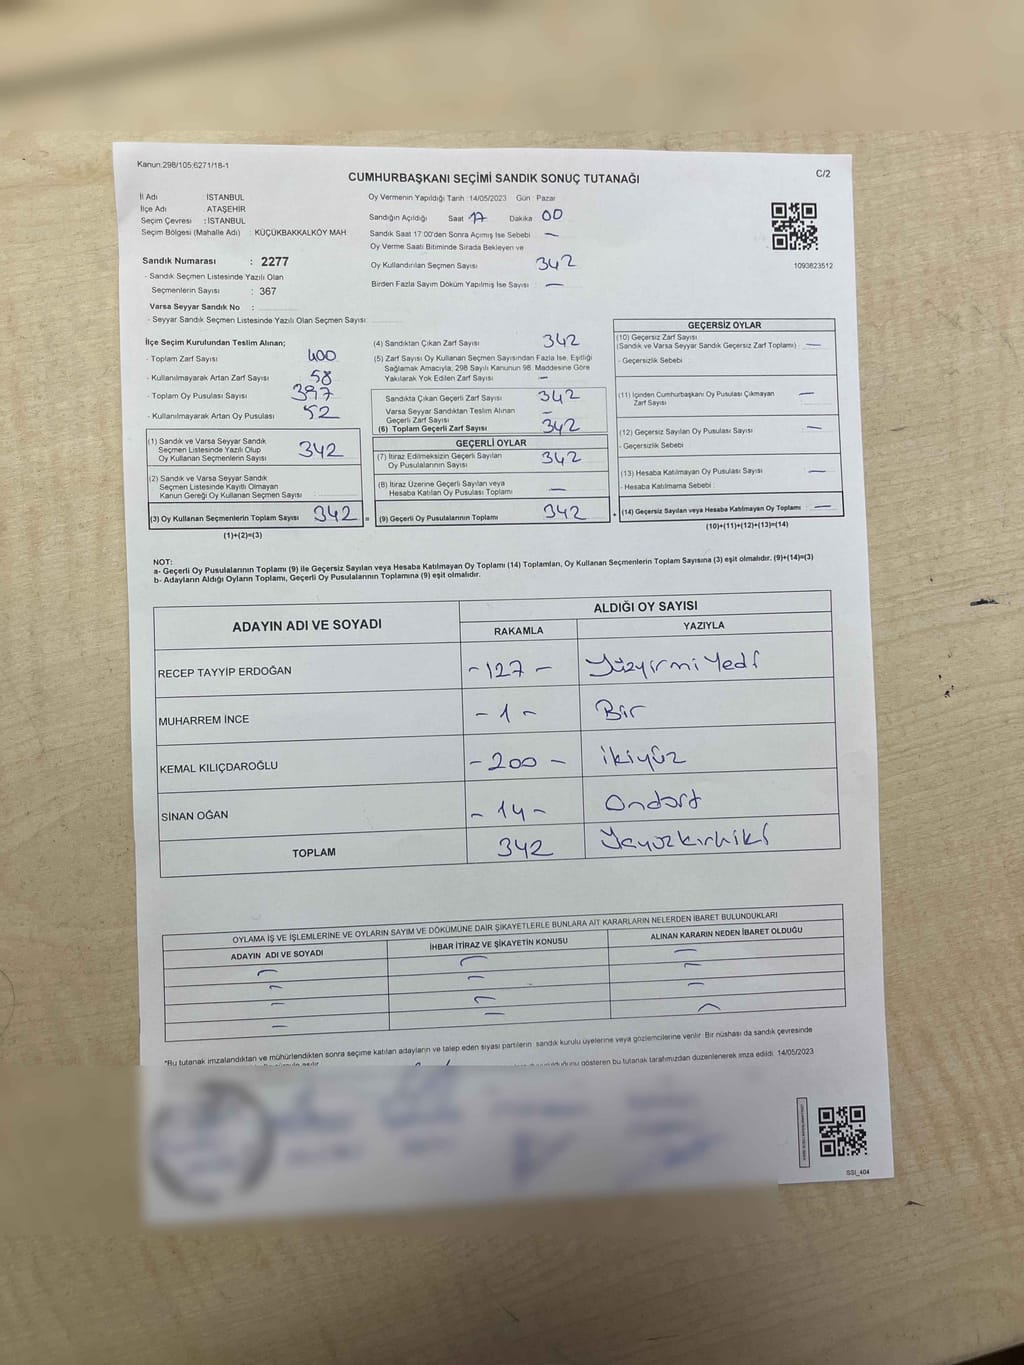 Kanun:298/105;6271/18-1
C/2
CUMHURBAŞKANI SEÇİMİ SANDIK SONUÇ TUTANAĞI
İl Adı İSTANBUL
İlçe Adı : ATAŞEHİR
Seçim Çevresi : İSTANBUL
Seçim Bölgesi (Mahalle Adı) : KÜÇÜKBAKKALKÖY MAH.
Sandık Numarası : 2277
- Sandık Seçmen Listesinde Yazılı Olan
Seçmenlerin Sayısı : 367
Varsa Seyyar Sandık No :
- Seyyar Sandık Seçmen Listesinde Yazılı Olan Seçmen Sayısı:
Oy Vermenin Yapıldığı Tarih :14/05/2023 Gün : Pazar
Sandığın Açıldığı Saat 17 Dakika 00
Sandık Saat 17:00'den Sonra Açılmış İse Sebebi —
Oy Verme Saati Bitiminde Sırada Bekleyen ve
Oy Kullandırılan Seçmen Sayısı 342
Birden Fazla Sayım Döküm Yapılmış İse Sayısı —
1093823512
İlçe Seçim Kurulundan Teslim Alınan;
- Toplam Zarf Sayısı 400
- Kullanılmayarak Artan Zarf Sayısı 58
- Toplam Oy Pusulası Sayısı 397
- Kullanılmayarak Artan Oy Pusulası 52
(1) Sandık ve Varsa Seyyar Sandık
Seçmen Listesinde Yazılı Olup
Oy Kullanan Seçmenlerin Sayısı 342
(2) Sandık ve Varsa Seyyar Sandık
Seçmen Listesinde Kayıtlı Olmayan
Kanun Gereği Oy Kullanan Seçmen Sayısı
(3) Oy Kullanan Seçmenlerin Toplam Sayısı 342 =
(1)+(2)=(3)
(4) Sandıktan Çıkan Zarf Sayısı 342
(5) Zarf Sayısı Oy Kullanan Seçmen Sayısından Fazla İse, Eşitliği
Sağlamak Amacıyla, 298 Sayılı Kanunun 98. Maddesine Göre
Yakılarak Yok Edilen Zarf Sayısı —
Sandıkta Çıkan Geçerli Zarf Sayısı 342
Varsa Seyyar Sandıktan Teslim Alınan
Geçerli Zarf Sayısı —
(6) Toplam Geçerli Zarf Sayısı 342
GEÇERLİ OYLAR
(7) İtiraz Edilmeksizin Geçerli Sayılan
Oy Pusulalarının Sayısı 342
(8) İtiraz Üzerine Geçerli Sayılan veya
Hesaba Katılan Oy Pusulası Toplamı —
(9) Geçerli Oy Pusulalarının Toplamı 342 +
GEÇERSİZ OYLAR
(10) Geçersiz Zarf Sayısı
(Sandık ve Varsa Seyyar Sandık Geçersiz Zarf Toplamı) : —
- Geçersizlik Sebebi :
(11) İçinden Cumhurbaşkanı Oy Pusulası Çıkmayan
Zarf Sayısı —
(12) Geçersiz Sayılan Oy Pusulası Sayısı —
- Geçersizlik Sebebi
(13) Hesaba Katılmayan Oy Pusulası Sayısı —
- Hesaba Katılmama Sebebi :
(14) Geçersiz Sayılan veya Hesaba Katılmayan Oy Toplamı —
(10)+(11)+(12)+(13)=(14)
NOT:
a- Geçerli Oy Pusulalarının Toplamı (9) ile Geçersiz Sayılan veya Hesaba Katılmayan Oy Toplamı (14) Toplamları, Oy Kullanan Seçmenlerin Toplam Sayısına (3) eşit olmalıdır. (9)+(14)=(3)
b- Adayların Aldığı Oyların Toplamı, Geçerli Oy Pusulalarının Toplamına (9) eşit olmalıdır.
ADAYIN ADI VE SOYADI ALDIĞI OY SAYISI
RAKAMLA YAZIYLA
RECEP TAYYİP ERDOĞAN - 127 - Yüzyirmi Yedi
MUHARREM İNCE - 1 - Bir
KEMAL KILIÇDAROĞLU - 200 - ikiyüz
SİNAN OĞAN - 14 - Ondört
TOPLAM 342
OYLAMA İŞ VE İŞLEMLERİNE VE OYLARIN SAYIM VE DÖKÜMÜNE DAİR ŞİKAYETLERLE BUNLARA AİT KARARLARIN NELERDEN İBARET BULUNDUKLARI
ADAYIN ADI VE SOYADI İHBAR İTİRAZ VE ŞİKAYETİN KONUSU ALINAN KARARIN NEDEN İBARET OLDUĞU
"Bu tutanak imzalandıktan ve mühürlendikten sonra seçime katılan adayların ve talep eden siyasi partilerin sandık kurulu üyelerine veya gözlemcilerine verilir. Bir nüshası da sandık çevresinde
gösteren bu tutanak tarafımızdan düzenlenerek imza edildi. 14/05/2023
SSI_404